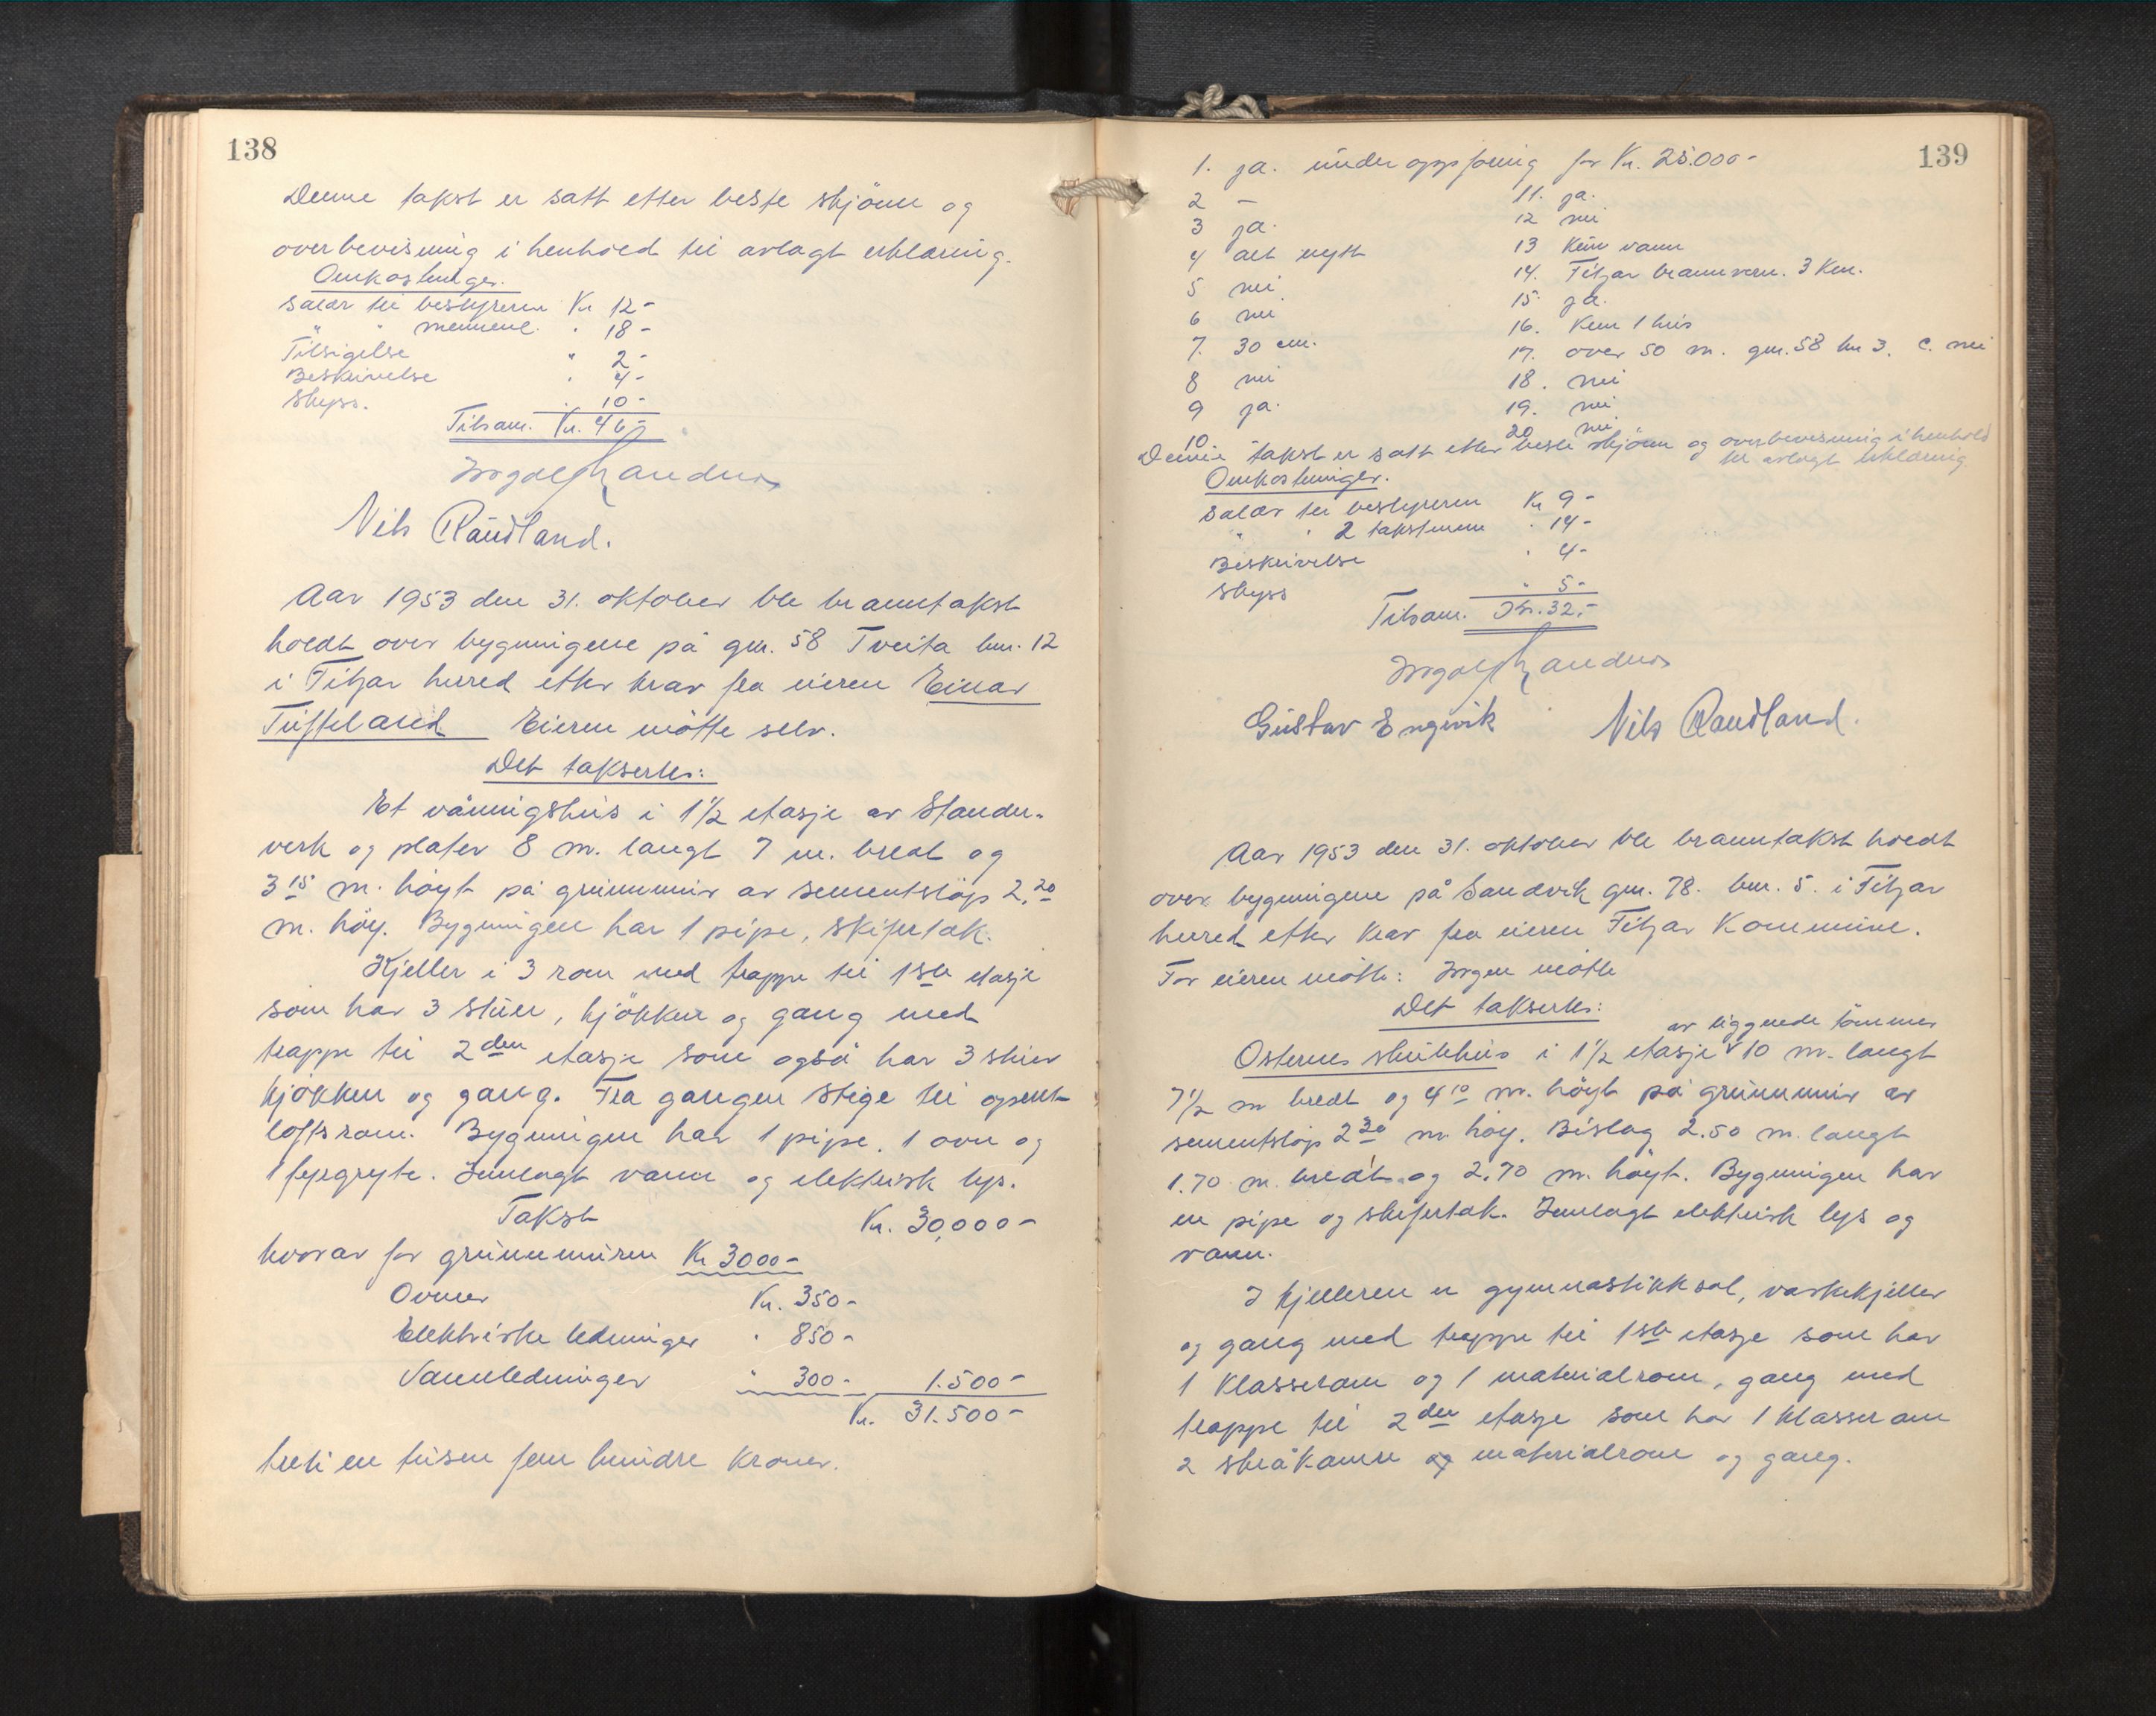 138
Denne takst er satt etter beste skjönn og
overbevisning i henhold til avlagt erklæring.
Omkostninger.
Salær til bestyreren Kr 12-
" " mennene " 18-
Tilsigelse " 2-
Beskrivelse " 4-
Skyss. " 10-
Tilsam. Kr. 46-
Nils Raudland.
Aar 1953 den 31. oktober ble branntakst
holdt over bygningene på gnr. 58 Tveita bnr. 12
i Fitjar herred etter krav fra eieren Einar
Tufteland Eieren mötte selv.
Det takserte:
Et våningshus i 1½ etasje av Stender-
verk og plater 8 m. langt 7 m. bredt og
3 15 m. höyt på grunnmur av sementstöp 2.20
m. höy. Bygningen har 1 pipe, skifertak.
Kjeller i 3 rom med trappe til 1ste etasje
som har 3 stuer, kjökken og gang med
trappe til 2den etasje som også har 3 stuer
kjökken og gang. Fra gangen stige til opent
loftsrom. Bygningen har 1 pipe, 1 ovn og
1 føregryte. Innlagt vann og elektrisk lys.
Takst Kr. 30,000-
hvorav for grunnmuren Kr 3000-
Ovner Kr. 350-
Elektriske ledninger " 850-
Vannledninger " 300- 1.500-
Kr. 31.500-
tretti en tusen fem hundre kroner.
139
1. ja. under oppføring for Kr. 25.000-
2 - 11. ja.
3 ja. 12 nei
4 alt nytt 13 Kun vann
5 nei 14. Fitjar brannvern. 3 Km.
6 nei 15 ja.
7. 30 cm. 16. Kun 1 hus
8 nei 17. over 50 m. gnr. 58 bnr 3. C. nei
9 ja. 18. nei
10 19. nei
20 nei
Denne takst er satt etter beste skjönn og overbevisning i henhold
til avlagt erklæring
Omkostninger.
Salær til bestyreren Kr 9-
" " 2 takstmenn " 14-
Beskrivelse " 4-
Skyss " 5-
Tilsam. Kr. 32.-
Gustav Engevik Nils Raudland.
Aar 1953 den 31. oktober ble branntakst holdt
over bygningene på Sandvik gnr. 78. bnr. 5. i Fitjar
herred etter krav fra eieren Fitjar Kommune.
For eieren mötte: Ingen mötte
Det takserte:
av liggende tömmer
Osternes skulehus i 1½ etasje 10 m. langt
7½ m bredt og 4 10 m. höyt på grunnmur av
sementstöp 2 30 m. höy. Bislag 2.50 m. langt
1.70 m. bredt og 2.70 m. höyt. Bygningen har
en pipe og skifertak. Innlagt elektrisk lys og
vann.
I kjelleren er gymnastikksal, vaskekjeller
og gang med trappe til 1ste etasje som har
1 Klasserom og 1 materialrom, gang med
trappe til 2den etasje som har 1 klasserom
2 skråkamre og materialrom og gang.